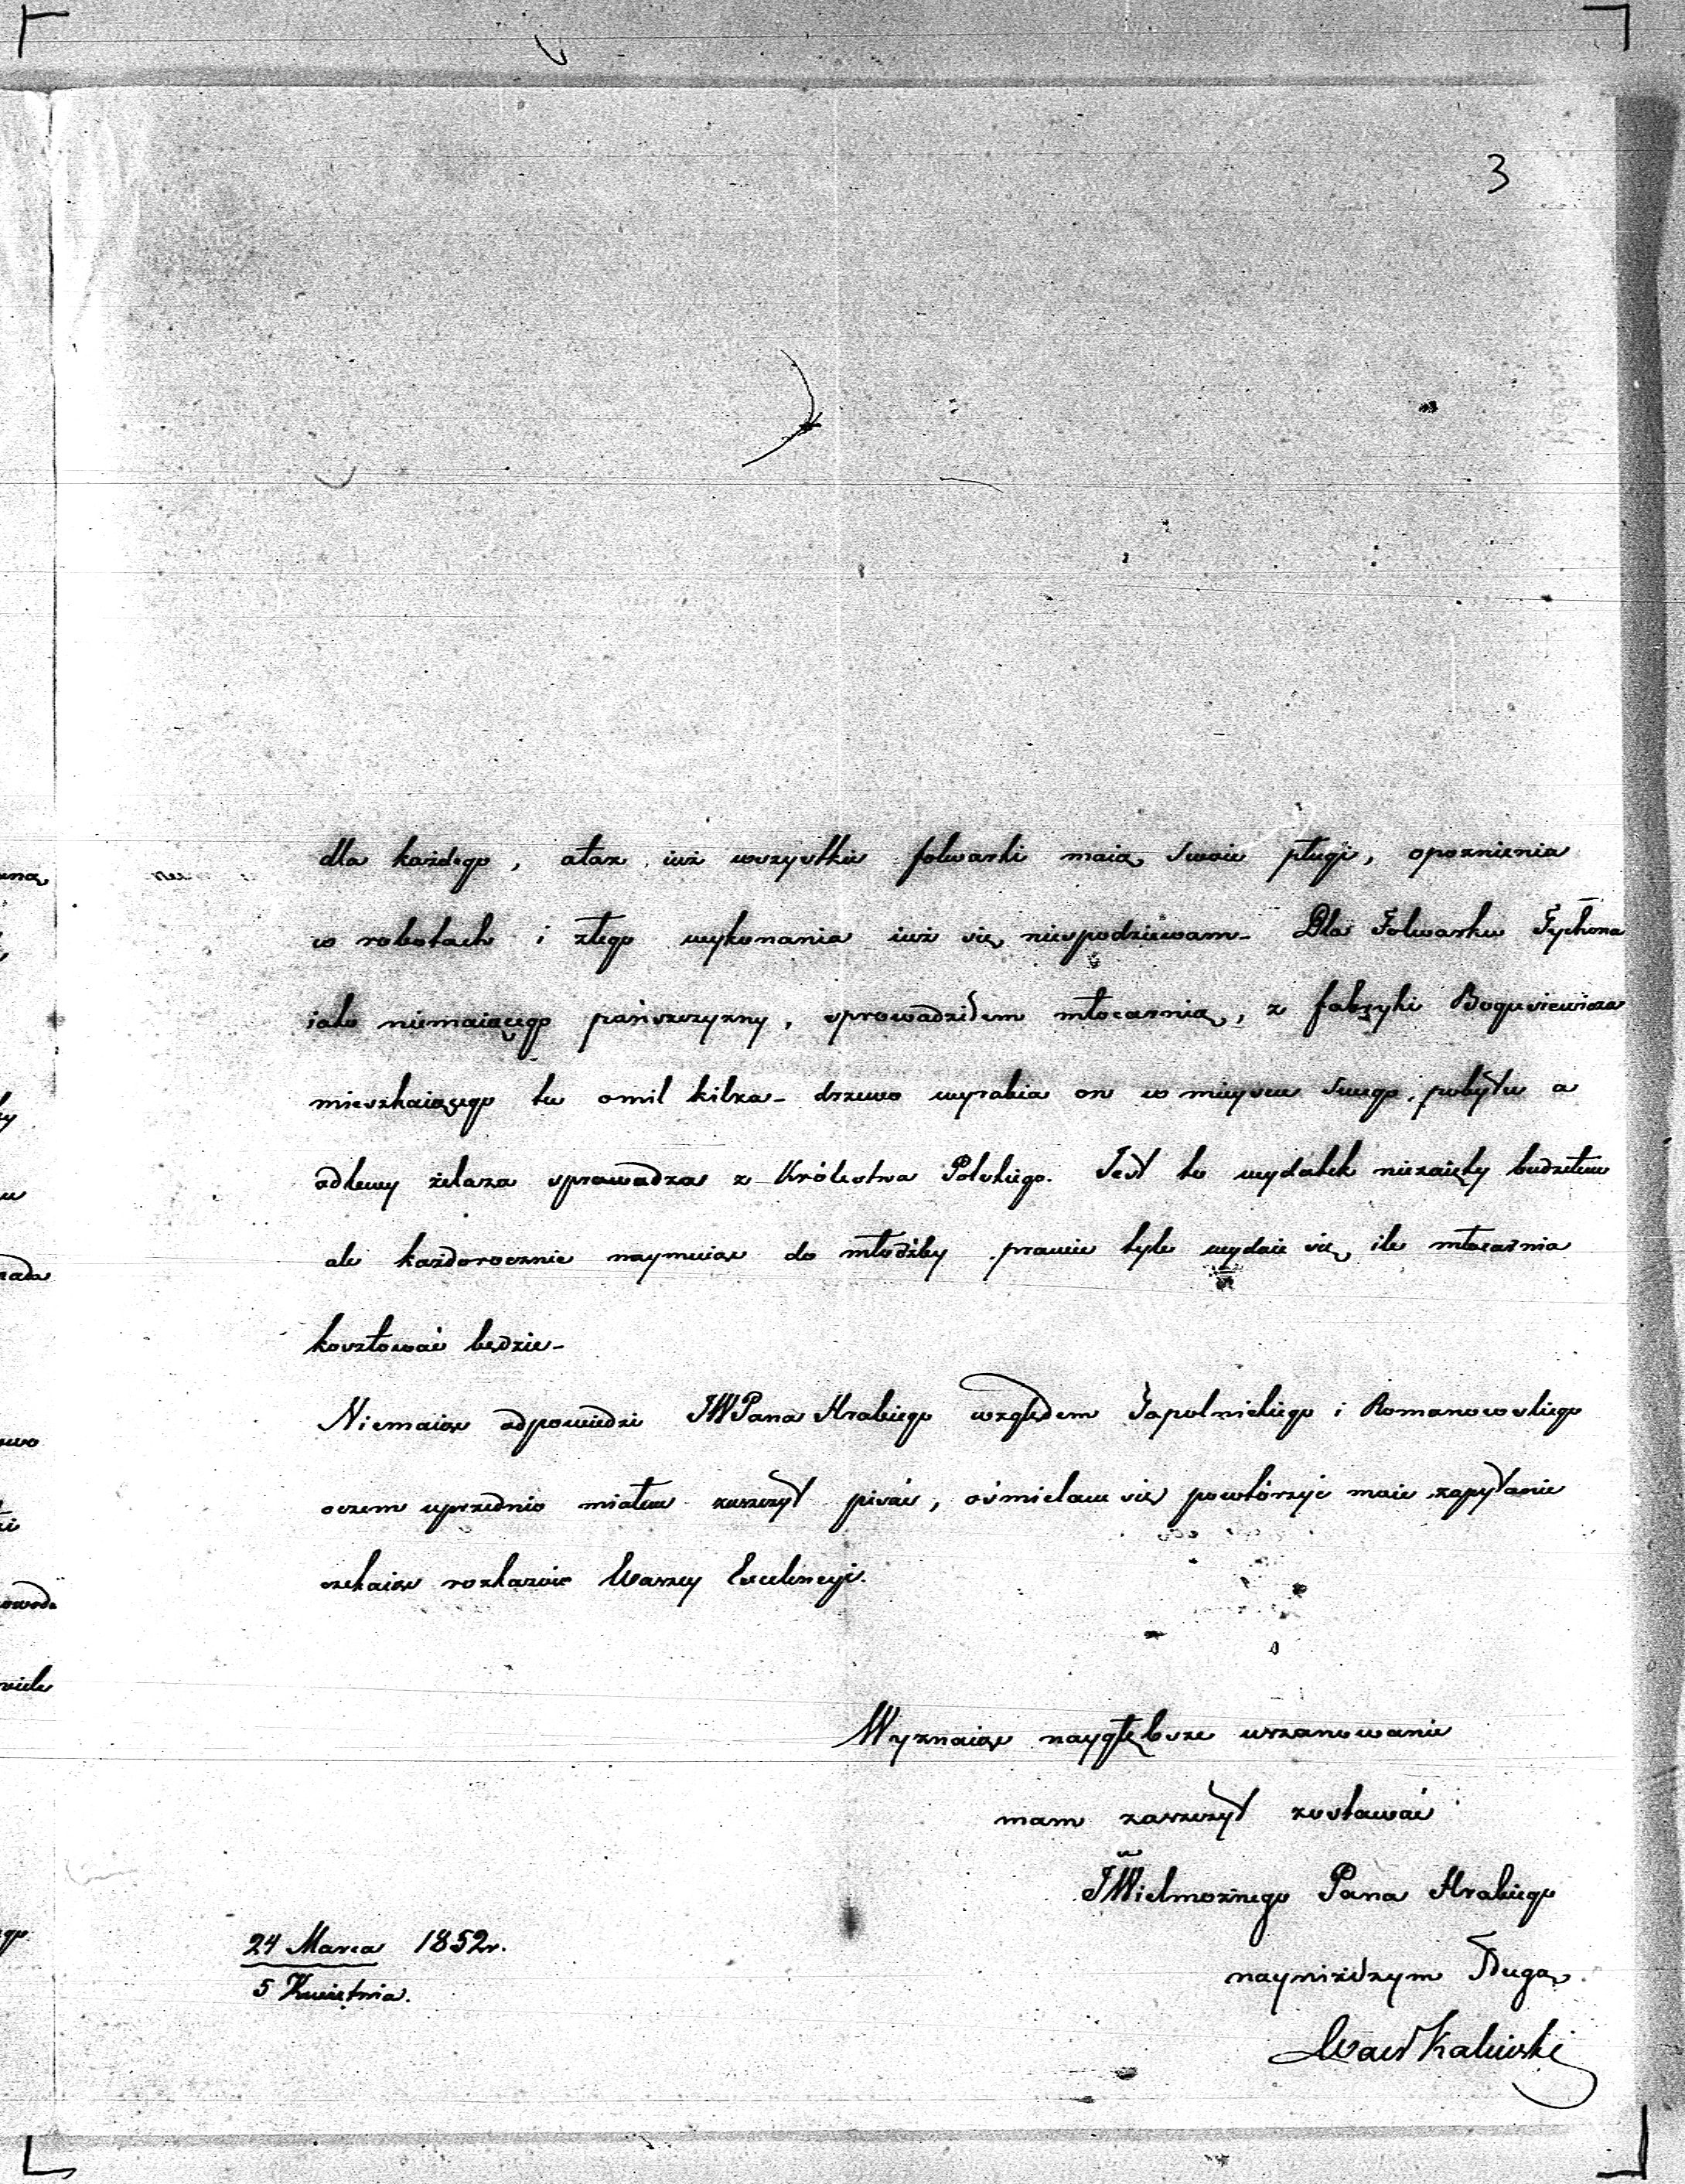 3
dla każdego, atak iuż wszystkie folwarki maią swoie pługi, opoznienia
w robotach i złego wykonania iuż się niespodziewam_ Dla Folwarku Tychona
iako niemaiącego pańszczyzny, sprowadziłem młocarnią, z fabryki Bogusiewicza
mieszkaiącego tu omil kilka_ drzewo wyrabia on w mieyscu swego pobytu a
odlewy żelaza sprowadza z Królestwa Polskiego. Jest to wydatek niezaięty budżetem
ale każdorocznie naymuiąc do młoćby prawie tyle wydaie się ile młocarnia
kosztować będzie_
Niemaiąc odpowiedzi JWPana Hrabiego względem Sapolnickiego i Romanowskiego
oczem uprzednio miałem zaszczyt pisać, ośmielam się powtórzyć moie zapytanie
czekaiąc rozkazów Waszey Excelencyi.
Wyznaiąc naygłębsze uszanowanie
mam zaszczyt zostawać
JWielmożnego Pana Hrabiego
nayniższym Sługą
24 Marca 1852r.
5 Kwietnia.